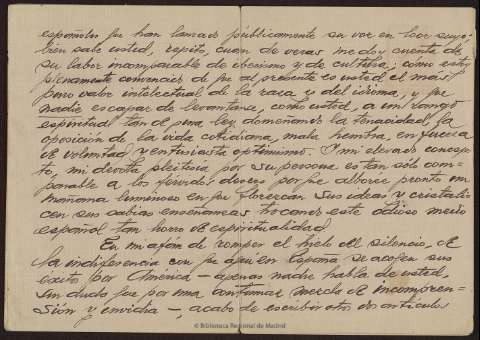 españoles que han lanzado públicamente su voz en loor suyo;
bien sabe usted, repito, cuan de veras me doy cuenta de
su labor incomparable de iberismo y de cultura; como estoy
plenamente convencido de que al presente es usted el más
puro valor intelectual de la raza y del idioma, y que
nadie es capaz de levantarse, como usted, a un rango
espiritual tan de pura ley domeñando la tenacidad, la
oposición de la vida cotidiana, mala hembra, en fuerza
de voluntad y entusiasta optimismo. Y mi elevado concep-
to, mi devota pleitesía por su persona es tan sólo com-
parable a los férvidos deseos porque alboree pronto un
mañana luminoso en que florezcan sus ideas y cristali-
cen sus sabias enseñanzas trocando este odioso medio
español tan horro de espiritualidad
En mi afán de romper el hielo del silencio, de
la indiferencia con que aquí en España se acogen sus
éxitos por América - apenas nadie habla de usted,
sin duda que por una continua mezcla de incompren-
sión y envidia -, acabo de escribir otros dos artículos
© Biblioteca Regional de Madrid